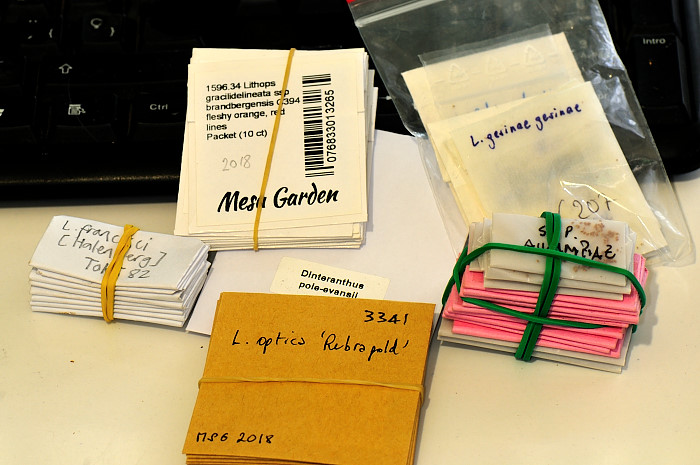 1596.34 Lithops
gracilidelineata ssp
brandbergensis C394
fleshy orange, red
lines
Packet (10 ct)
076833013265
2018
Mesa Garden
L. gesinae gesinae
L. francisci
[Halenberg]
Dinteranthus
pole-evansii
3341
L. optica 'Rubragold'
MSG 2018
Ctrl
Intro